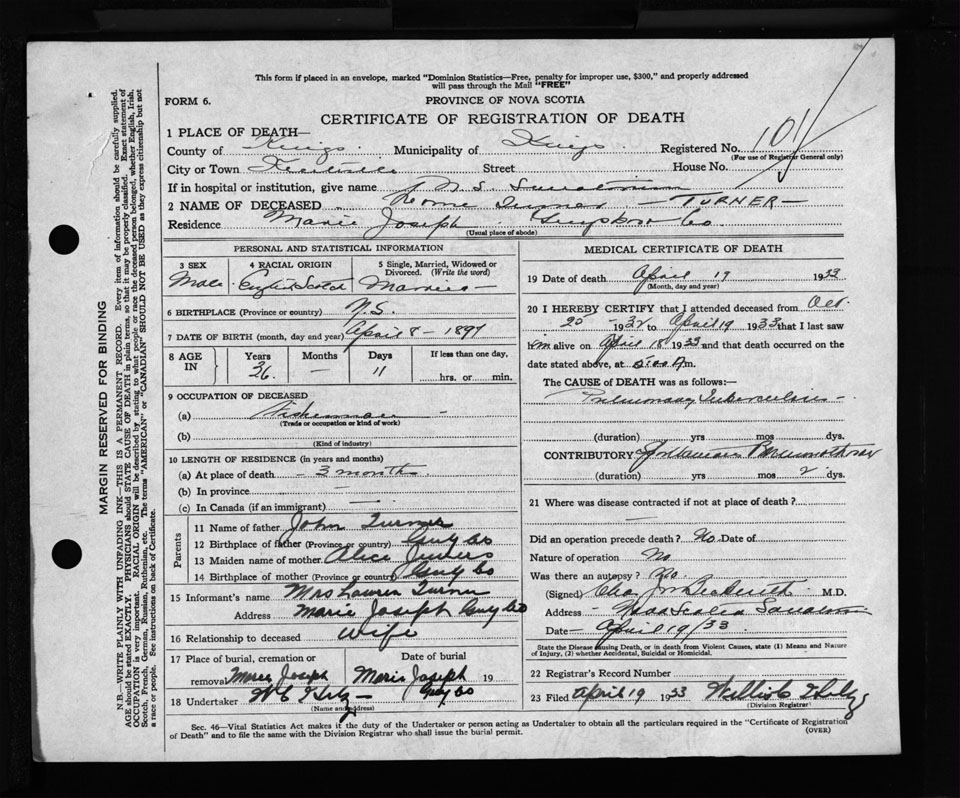 This form if placed in an envelope, marked "Dominion Statistics—Free, penalty for improper use, $300," and properly addressed
will pass through the Mail "FREE"
FORM 6.
PROVINCE OF NOVA SCOTIA
CERTIFICATE OF REGISTRATION OF DEATH
1 PLACE OF DEATH—
County of Kings Municipality of Kings Registered No. 101
(For use of Registrar General only)
City or Town Kentville Street House No.
If in hospital or institution, give name N. S. Sanatorium
2 NAME OF DECEASED Turner — TURNER —
Residence Marie Joseph Co
(Usual place of abode)
PERSONAL AND STATISTICAL INFORMATION
3 SEX 4 RACIAL ORIGIN 5 Single, Married, Widowed or Divorced. (Write the word)
Male English Scotch Married
6 BIRTHPLACE (Province or country) N.S.
7 DATE OF BIRTH (month, day and year) April 8 - 1897
8 AGE IN Years Months Days If less than one day,
36 — 11 hrs. or min.
9 OCCUPATION OF DECEASED
(a) Fisherman —
(Trade or occupation or kind of work)
(b)
(Kind of industry)
10 LENGTH OF RESIDENCE (in years and months)
(a) At place of death 3 month
(b) In province —
(c) In Canada (if an immigrant) —
Parents
11 Name of father John Turner
12 Birthplace of father (Province or country) Guy Co
13 Maiden name of mother Alice
14 Birthplace of mother (Province or country) Guy Co
15 Informant's name Mrs Turner
Address Marie Joseph Guy Co
16 Relationship to deceased Wife
17 Place of burial, cremation or removal Date of burial
Marie Joseph Marie Joseph Guy Co 19
18 Undertaker
(Name and address)
MEDICAL CERTIFICATE OF DEATH
19 Date of death April 19 1933
(Month, day and year)
20 I HEREBY CERTIFY that I attended deceased from Oct.
20 - 1932 to April 19 1933 that I last saw
him alive on April 18 1933 and that death occurred on
the date stated above, at m.
The CAUSE of DEATH was as follows:—
Pulmonary Tuberculosis —
(duration) yrs mos dys.
CONTRIBUTORY Spontaneous Pneumothorax
(duration) yrs mos 2 dys.
21 Where was disease contracted if not at place of death?
—
Did an operation precede death? No Date of
Nature of operation No
Was there an autopsy? No
(Signed) M.D.
Address - Nova Scotia Sanatorium
Date — April 19/33
State the Disease causing Death, or in death from Violent Causes, state (1) Means and Nature
of Injury, (2) whether Accidental, Suicidal or Homicidal.
22 Registrar's Record Number
23 Filed April 19 1933
(Division Registrar)
Sec. 46—Vital Statistics Act makes it the duty of the Undertaker or person acting as Undertaker to obtain all the particulars required in the "Certificate of Registration
of Death" and to file the same with the Division Registrar who shall issue the burial permit.
(OVER)
MARGIN RESERVED FOR BINDING
N.B.—WRITE PLAINLY WITH UNFADING INK—THIS IS A PERMANENT RECORD. Every item of information should be carefully supplied.
AGE should be stated EXACTLY. PHYSICIANS should STATE CAUSE OF DEATH in plain terms, so that it may be properly classified. Exact statement of
OCCUPATION is very important. RACIAL ORIGIN will be described by stating to what people or race the deceased person belonged, whether English, Irish,
Scotch, French, German, Russian, Ruthenian, etc. The terms "AMERICAN" or "CANADIAN" SHOULD NOT BE USED as they express citizenship but not
a race or people. See instructions on back of Certificate.